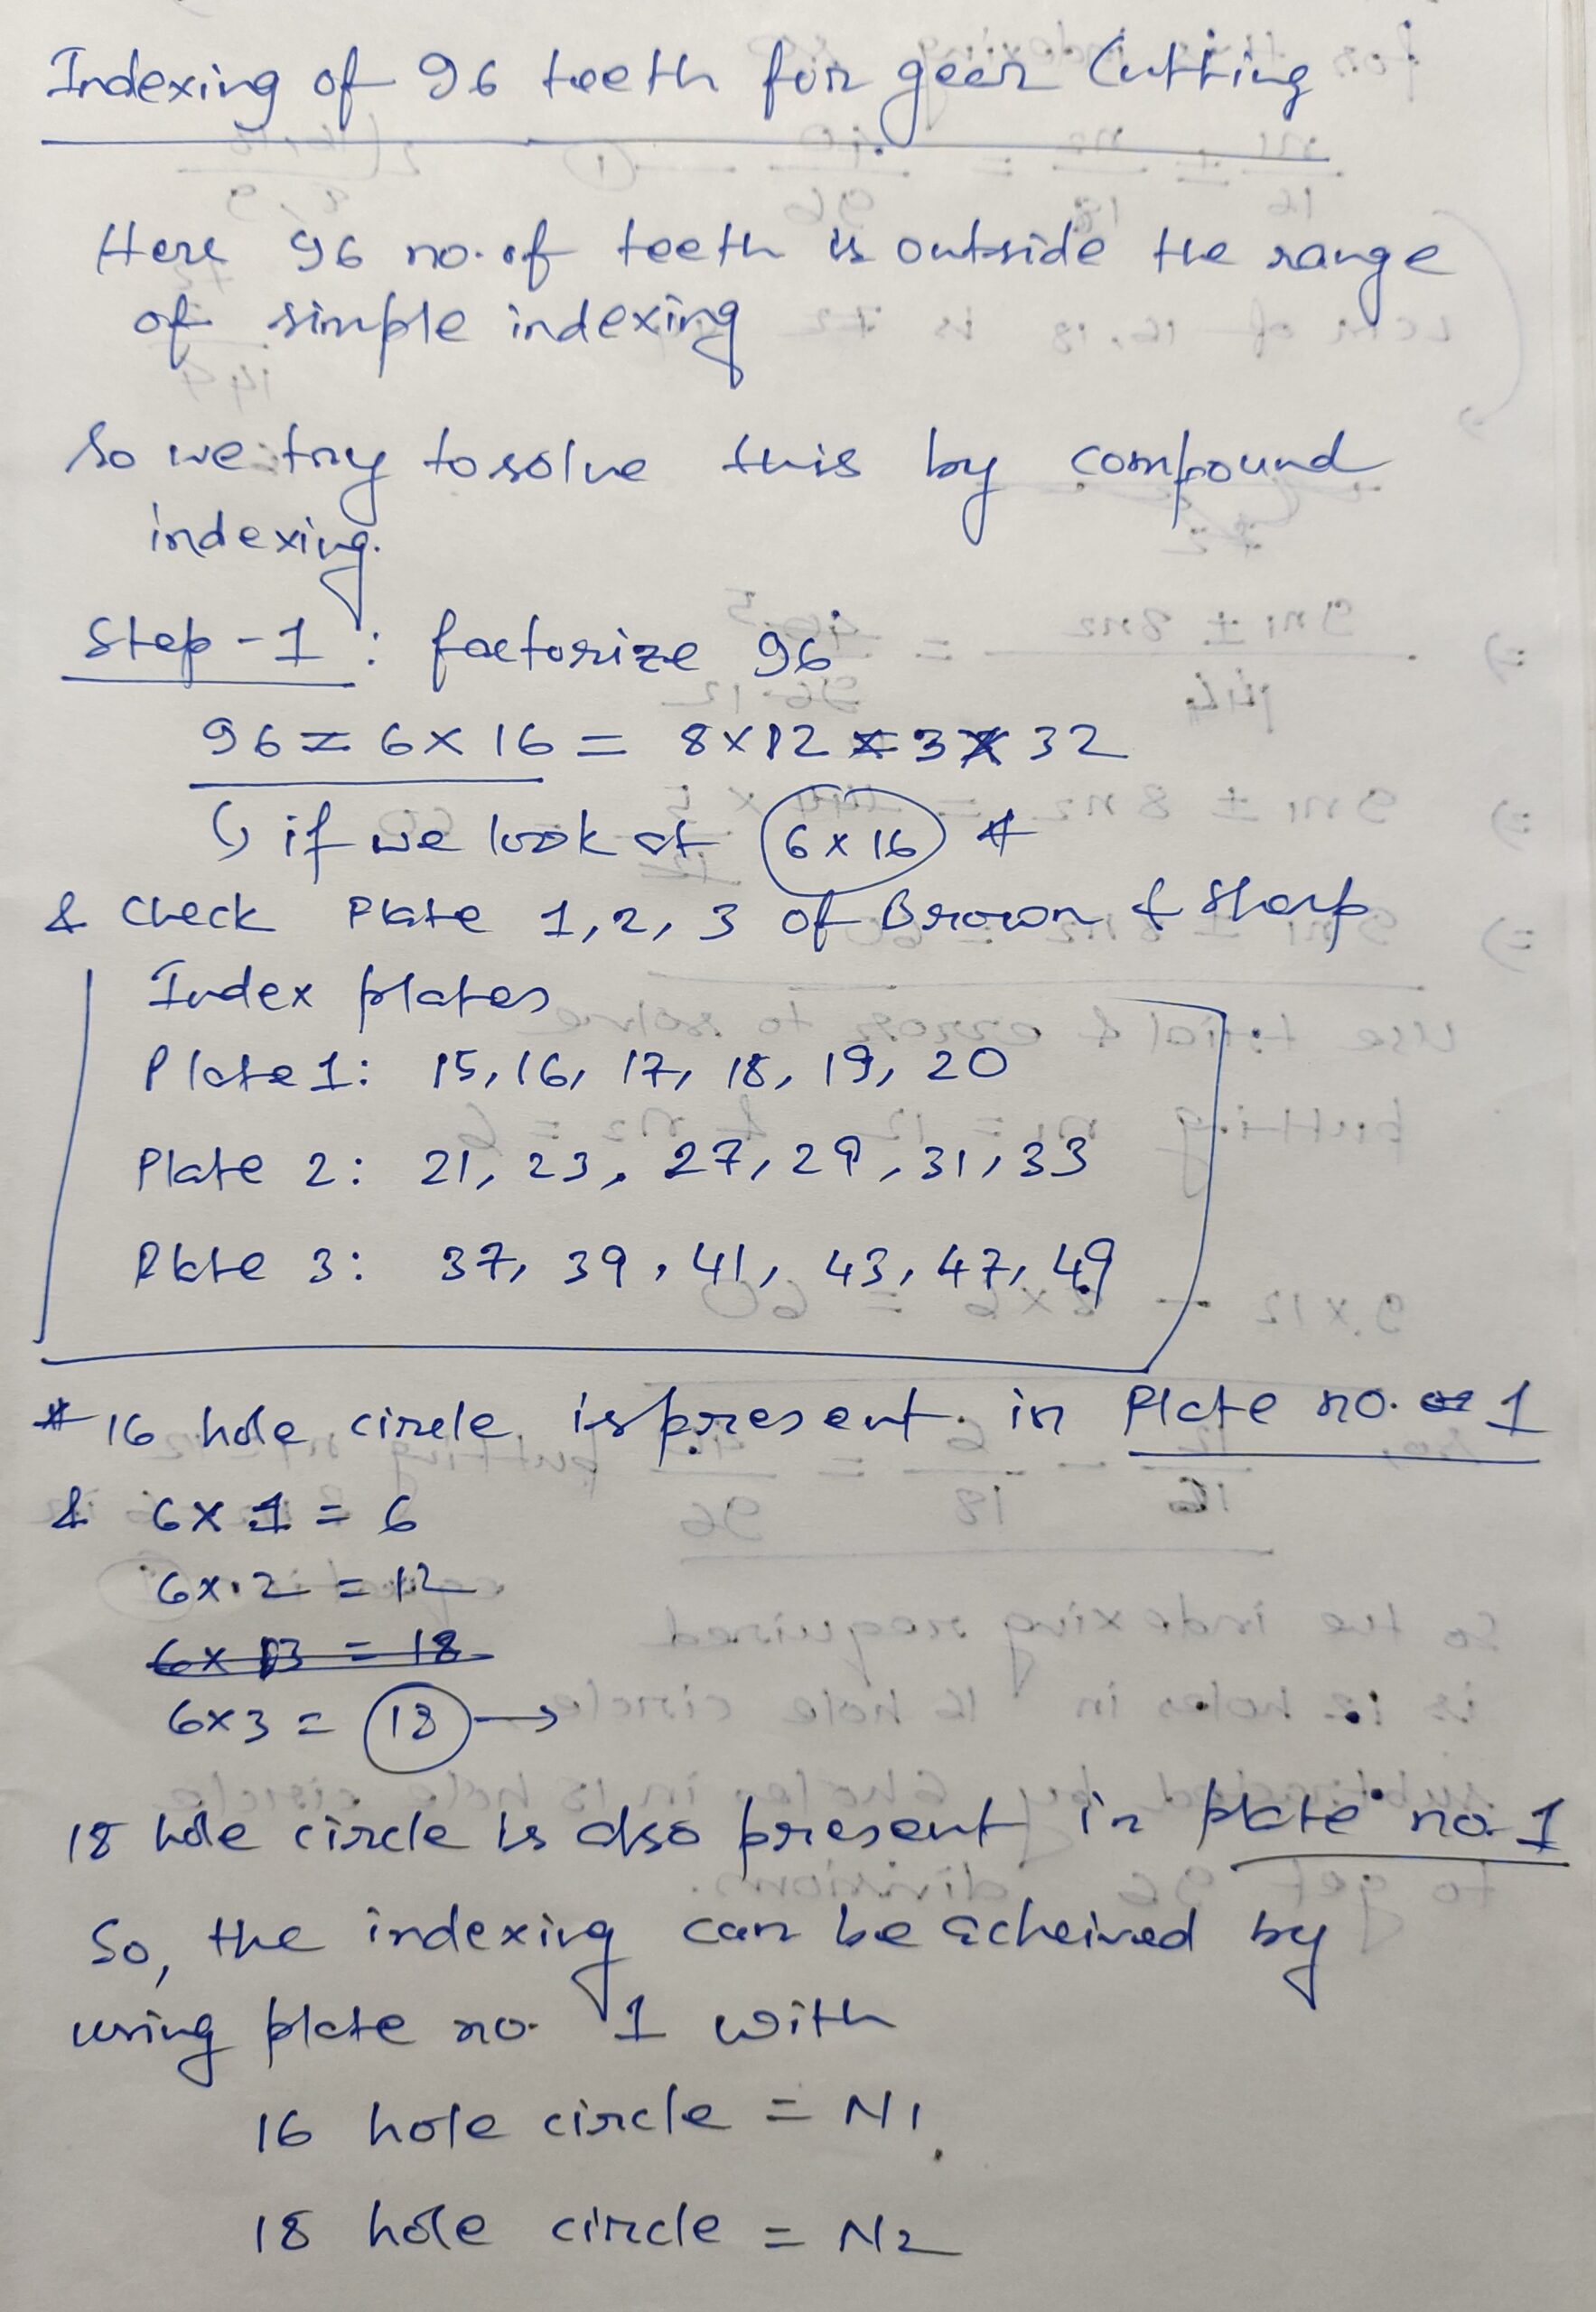 Indexing of 96 teeth for gear Cutting
Here 96 no. of teeth is outside the range
of simple indexing
So we try to solve this by compound
indexing.
Step-1 : factorize 96
96 = 6 x 16 = 8 x 12 = 3 x 32
↳ if we look at 6 x 16 *
& Check Plate 1, 2, 3 of Brown & Sharp
Index plates
Plate 1: 15, 16, 17, 18, 19, 20
Plate 2: 21, 23, 27, 29, 31, 33
Plate 3: 37, 39, 41, 43, 47, 49
* 16 hole circle is present in Plate no. 1
& 6 x 1 = 6
6 x 2 = 12
6 x 3 = 18
6 x 3 = 18 →
18 hole circle is also present in plate no. 1
So, the indexing can be acheived by
using plate no. 1 with
16 hole circle = N1
18 hole circle = N2